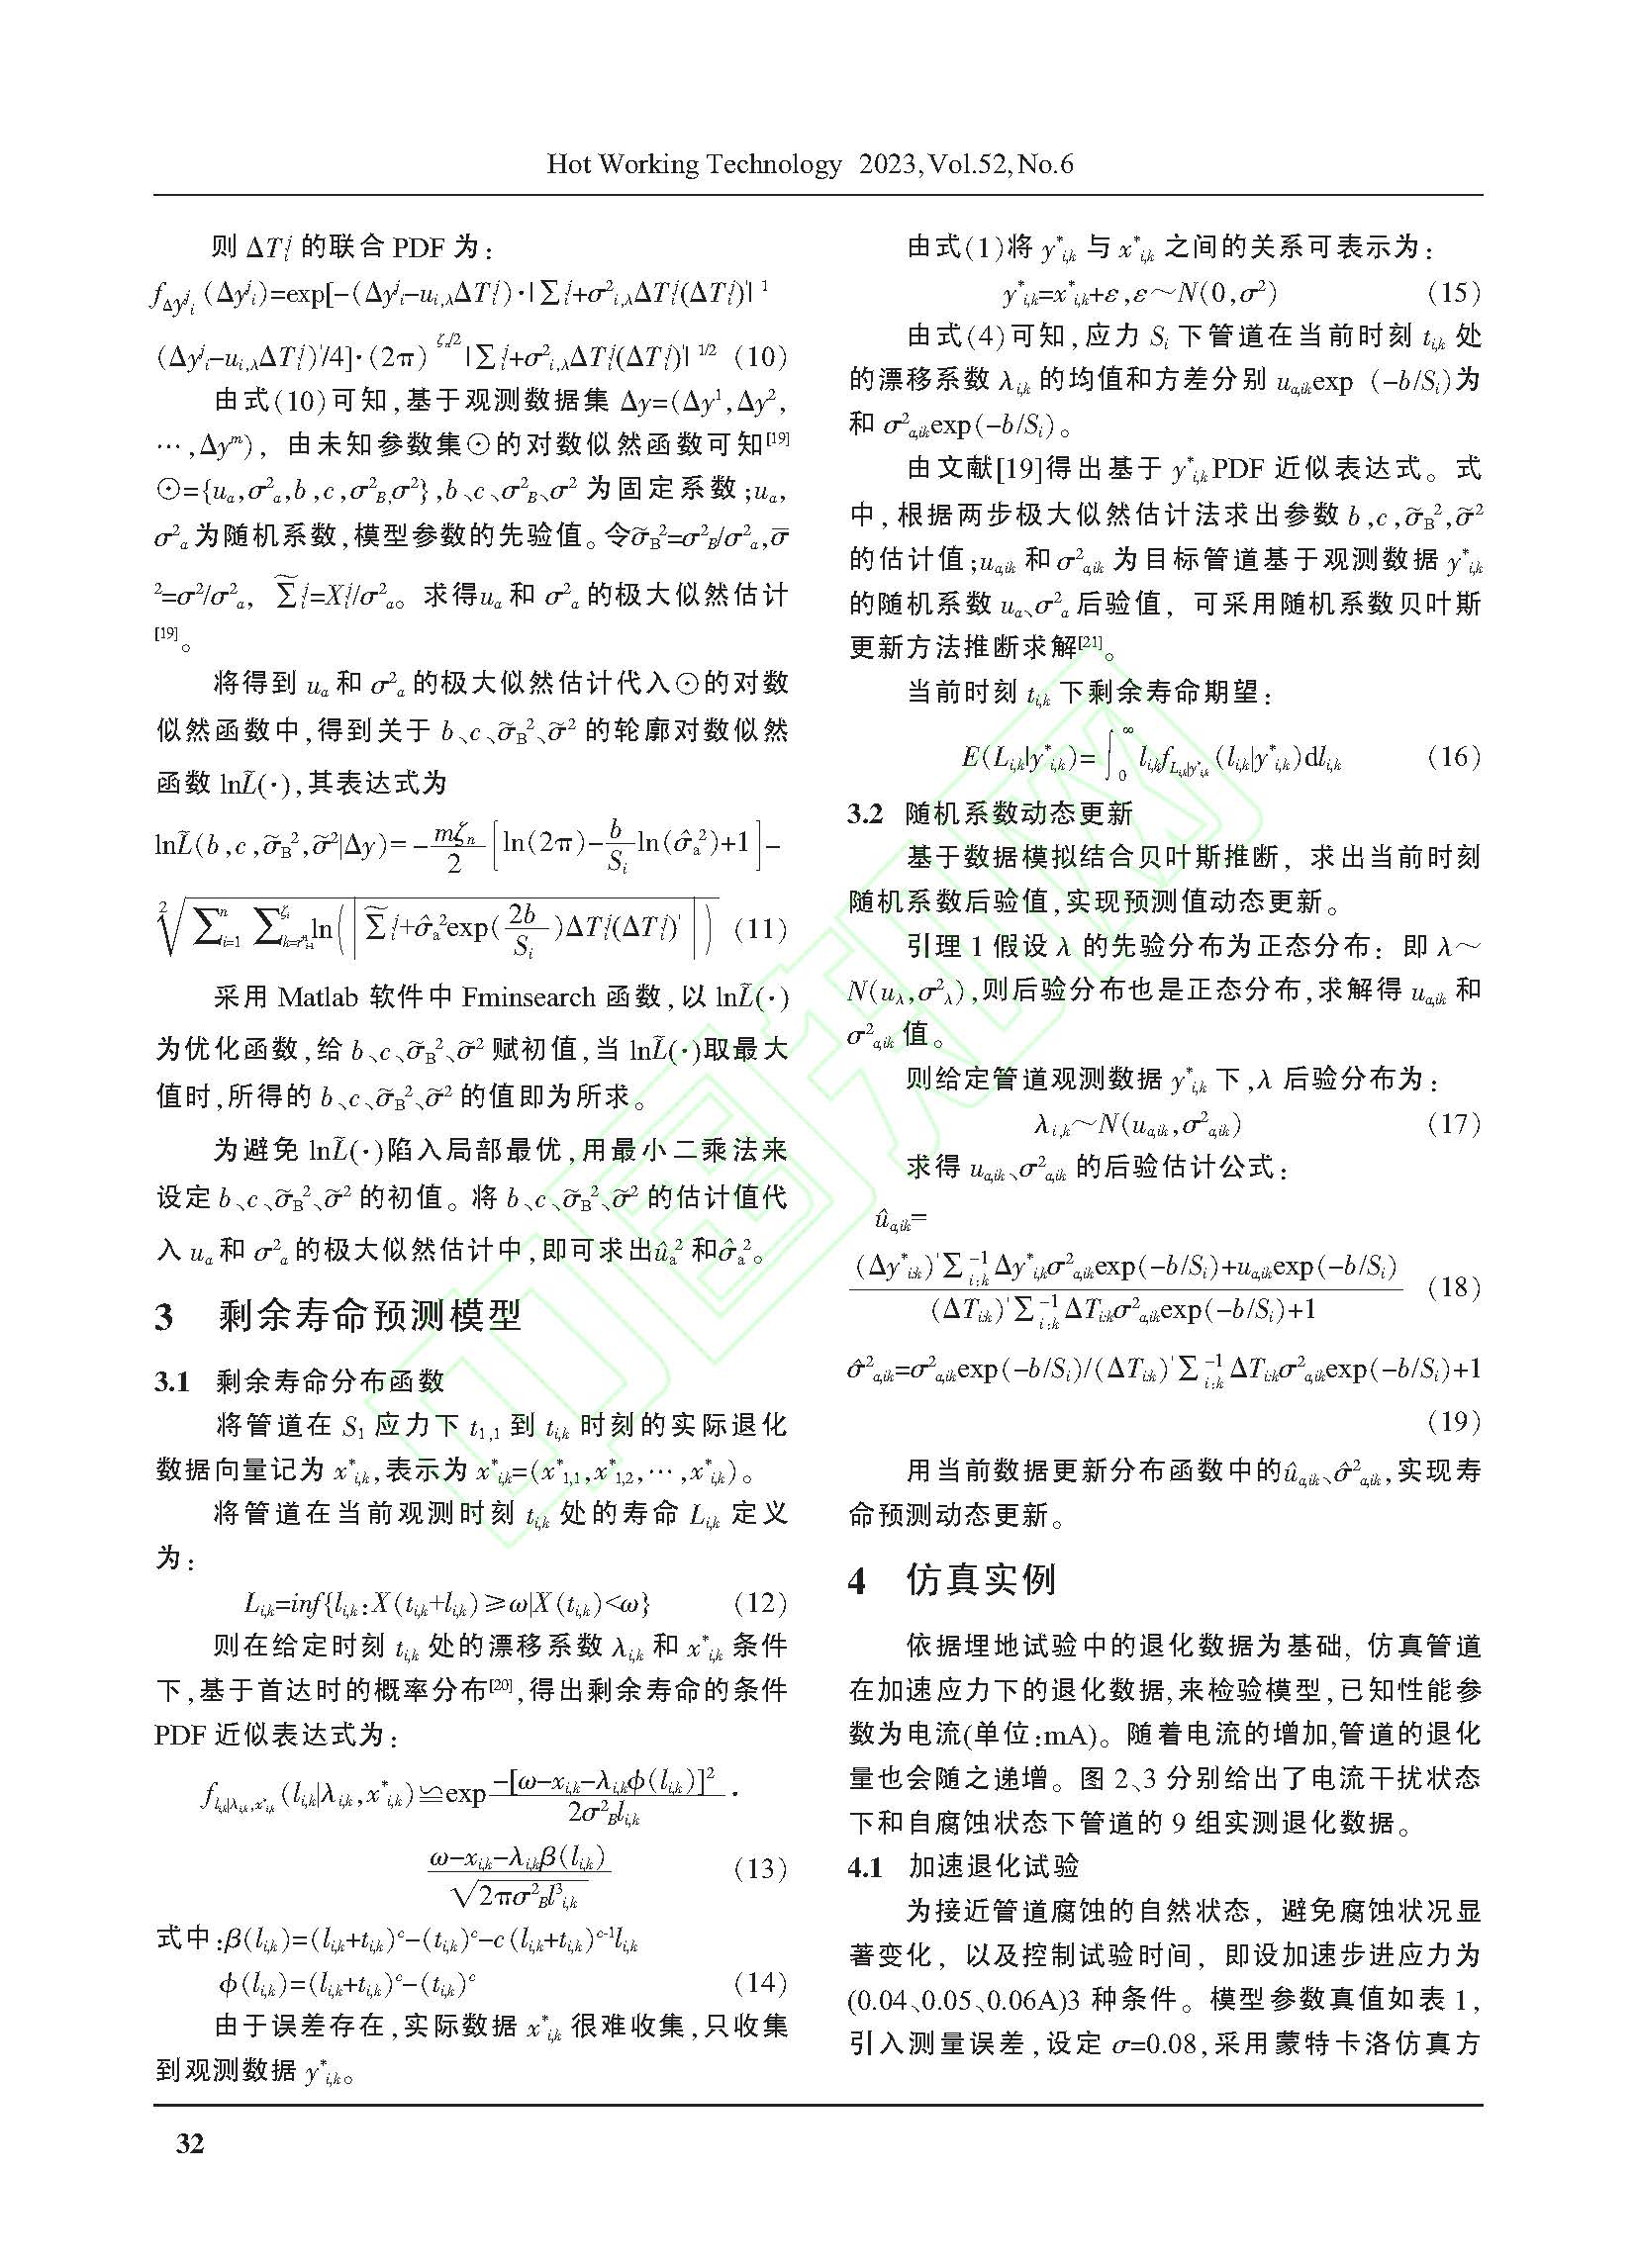 Hot Working Technology 2023,Vol.52,No.6
则 ΔTᵢʲ 的联合 PDF 为:
f_{Δyʲᵢ}(Δyʲᵢ)=exp[-(Δyʲᵢ-u_{i,λ}ΔTᵢʲ)·|∑ᵢʲ+σ²_{i,λ}ΔTᵢʲ(ΔTᵢʲ)'|¹
(Δyʲᵢ-u_{i,λ}ΔTᵢʲ)'/4]·(2π)^{ζᵢ/2}|∑ᵢʲ+σ²_{i,λ}ΔTᵢʲ(ΔTᵢʲ)'|^{1/2} (10)
由式(10)可知,基于观测数据集 Δy=(Δy¹,Δy²,
…,Δyᵐ),由未知参数集⊙的对数似然函数可知[19]
⊙={u_a,σ²_a,b,c,σ²_B,σ²},b、c、σ²_B、σ² 为固定系数;u_a,
σ²_a为随机系数,模型参数的先验值。令σ̃_B²=σ²_B/σ²_a,σ̅
²=σ²/σ²_a, ∑̃ᵢʲ=Xᵢʲ/σ²_a。求得u_a 和 σ²_a 的极大似然估计
[19]。
将得到 u_a 和 σ²_a 的极大似然估计代入⊙的对数
似然函数中,得到关于 b、c、σ̃_B²、σ̃² 的轮廓对数似然
函数 lnL̃(·),其表达式为
lnL̃(b,c,σ̃_B²,σ̃²|Δy)=-\frac{mζ_n}{2}[ln(2π)-\frac{b}{S_i}-ln(σ̂_a²)+1]-
\sqrt[2]{∑_{i=1}^{n}∑_{k=r^n_{i-1}}^{ζ_i}ln(|∑̃ᵢʲ+σ̂_a²exp(\frac{2b}{S_i})ΔTᵢʲ(ΔTᵢʲ)'|)} (11)
采用 Matlab 软件中 Fminsearch 函数,以 lnL̃(·)
为优化函数,给 b、c、σ̃_B²、σ̃² 赋初值,当 lnL̃(·)取最大
值时,所得的 b、c、σ̃_B²、σ̃² 的值即为所求。
为避免 lnL̃(·)陷入局部最优,用最小二乘法来
设定 b、c、σ̃_B²、σ̃² 的初值。将 b、c、σ̃_B²、σ̃² 的估计值代
入 u_a 和 σ²_a 的极大似然估计中,即可求出û_a² 和σ̂_a²。
3 剩余寿命预测模型
3.1 剩余寿命分布函数
将管道在 S₁ 应力下 t_{1,1} 到 t_{i,k} 时刻的实际退化
数据向量记为 x*_{i,k},表示为 x*_{i,k}=(x*_{1,1},x*_{1,2},…,x*_{i,k})。
将管道在当前观测时刻 t_{i,k} 处的寿命 L_{i,k} 定义
为:
L_{i,k}=inf{l_{i,k}:X(t_{i,k}+l_{i,k})≥ω|X(t_{i,k})<ω} (12)
则在给定时刻 t_{i,k} 处的漂移系数 λ_{i,k} 和 x*_{i,k} 条件
下,基于首达时的概率分布[20],得出剩余寿命的条件
PDF 近似表达式为:
f_{l_{i,k}|λ_{i,k},x*_{i,k}}(l_{i,k}|λ_{i,k},x*_{i,k})≌exp\frac{-[ω-x_{i,k}-λ_{i,k}ϕ(l_{i,k})]²}{2σ²_B l_{i,k}}·
\frac{ω-x_{i,k}-λ_{i,k}β(l_{i,k})}{\sqrt{2πσ²_B l³_{i,k}}} (13)
式中:β(l_{i,k})=(l_{i,k}+t_{i,k})^c-(t_{i,k})^c-c(l_{i,k}+t_{i,k})^{c-1}l_{i,k}
ϕ(l_{i,k})=(l_{i,k}+t_{i,k})^c-(t_{i,k})^c (14)
由于误差存在,实际数据 x*_{i,k} 很难收集,只收集
到观测数据 y*_{i,k}。
由式(1)将 y*_{i,k} 与 x*_{i,k} 之间的关系可表示为:
y*_{i,k}=x*_{i,k}+ε,ε~N(0,σ²) (15)
由式(4)可知,应力 S_i 下管道在当前时刻 t_{i,k} 处
的漂移系数 λ_{i,k} 的均值和方差分别 u_{a,ik}exp (-b/S_i)为
和 σ²_{a,ik}exp(-b/S_i)。
由文献[19]得出基于 y*_{i,k}PDF 近似表达式。式
中,根据两步极大似然估计法求出参数 b,c,σ̃_B²,σ̃²
的估计值;u_{a,ik} 和 σ²_{a,ik} 为目标管道基于观测数据 y*_{i,k}
的随机系数 u_a、σ²_a 后验值,可采用随机系数贝叶斯
更新方法推断求解[21]。
当前时刻 t_{i,k} 下剩余寿命期望:
E(L_{i,k}|y*_{i,k})=∫₀^∞ l_{i,k}f_{L_{i,k}|y*_{i,k}}(l_{i,k}|y*_{i,k})dl_{i,k} (16)
3.2 随机系数动态更新
基于数据模拟结合贝叶斯推断,求出当前时刻
随机系数后验值,实现预测值动态更新。
引理 1 假设 λ 的先验分布为正态分布:即 λ~
N(u_λ,σ²_λ),则后验分布也是正态分布,求解得 u_{a,ik} 和
σ²_{a,ik} 值。
则给定管道观测数据 y*_{i,k} 下,λ 后验分布为:
λ_{i,k}~N(u_{a,ik},σ²_{a,ik}) (17)
求得 u_{a,ik}、σ²_{a,ik} 的后验估计公式:
û_{a,ik}=
\frac{(Δy*_{i:k})'∑_{i:k}^{-1}Δy*_{i,k}σ²_{a,ik}exp(-b/S_i)+u_{a,ik}exp(-b/S_i)}{(ΔT_{i:k})'∑_{i:k}^{-1}ΔT_{i:k}σ²_{a,ik}exp(-b/S_i)+1} (18)
σ̂²_{a,ik}=σ²_{a,ik}exp(-b/S_i)/(ΔT_{i:k})'∑_{i:k}^{-1}ΔT_{i:k}σ²_{a,ik}exp(-b/S_i)+1
(19)
用当前数据更新分布函数中的û_{a,ik}、σ̂²_{a,ik},实现寿
命预测动态更新。
4 仿真实例
依据埋地试验中的退化数据为基础,仿真管道
在加速应力下的退化数据,来检验模型,已知性能参
数为电流(单位:mA)。随着电流的增加,管道的退化
量也会随之递增。图 2、3 分别给出了电流干扰状态
下和自腐蚀状态下管道的 9 组实测退化数据。
4.1 加速退化试验
为接近管道腐蚀的自然状态,避免腐蚀状况显
著变化,以及控制试验时间,即设加速步进应力为
(0.04、0.05、0.06A)3 种条件。模型参数真值如表 1,
引入测量误差,设定 σ=0.08,采用蒙特卡洛仿真方
32
中国知网